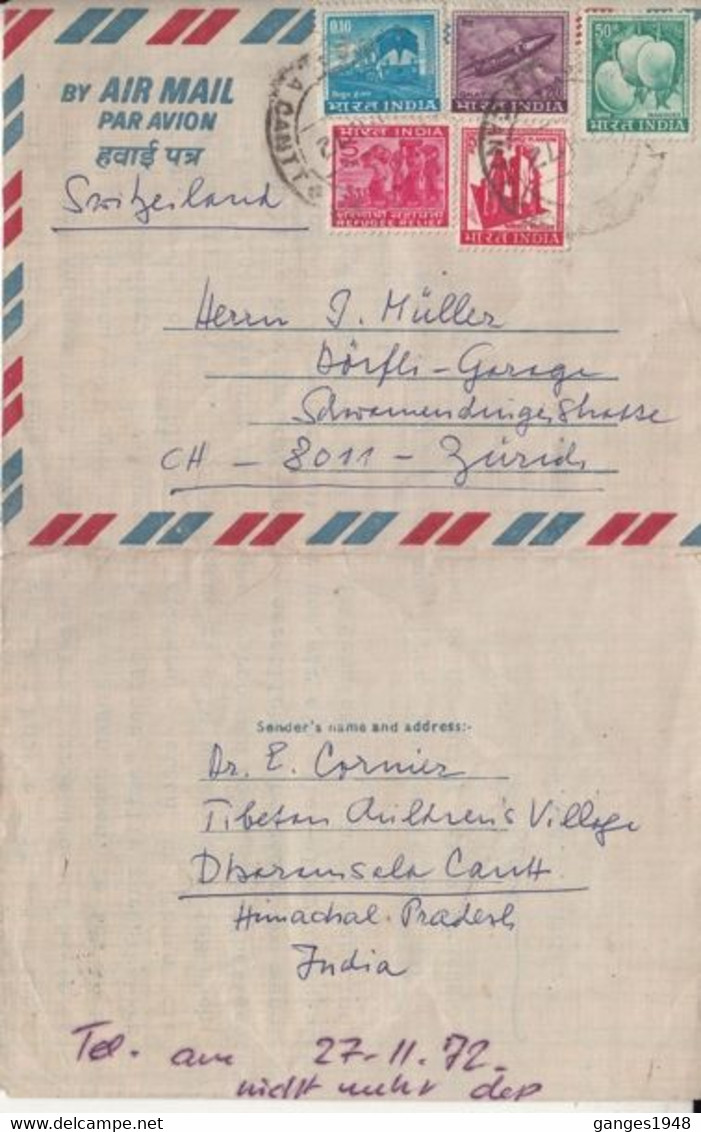 BY AIR MAIL
PAR AVION
हवाई पत्र
Switzerland
0.10
भारत INDIA
भारत INDIA
50
भारत INDIA
भारत INDIA
REFUGEE RELIEF
भारत INDIA
Herrn J. Müller
Dörfli-Garage
Schwamendingerstrasse
CH - 8011 - Zürich
Sender's name and address:-
Dr. E. Cornier
Tibetan Children's Village
Dharamsala Cantt
Himachal Pradesh
India
Tel. am 27-11.72
nicht mehr
ganges1948